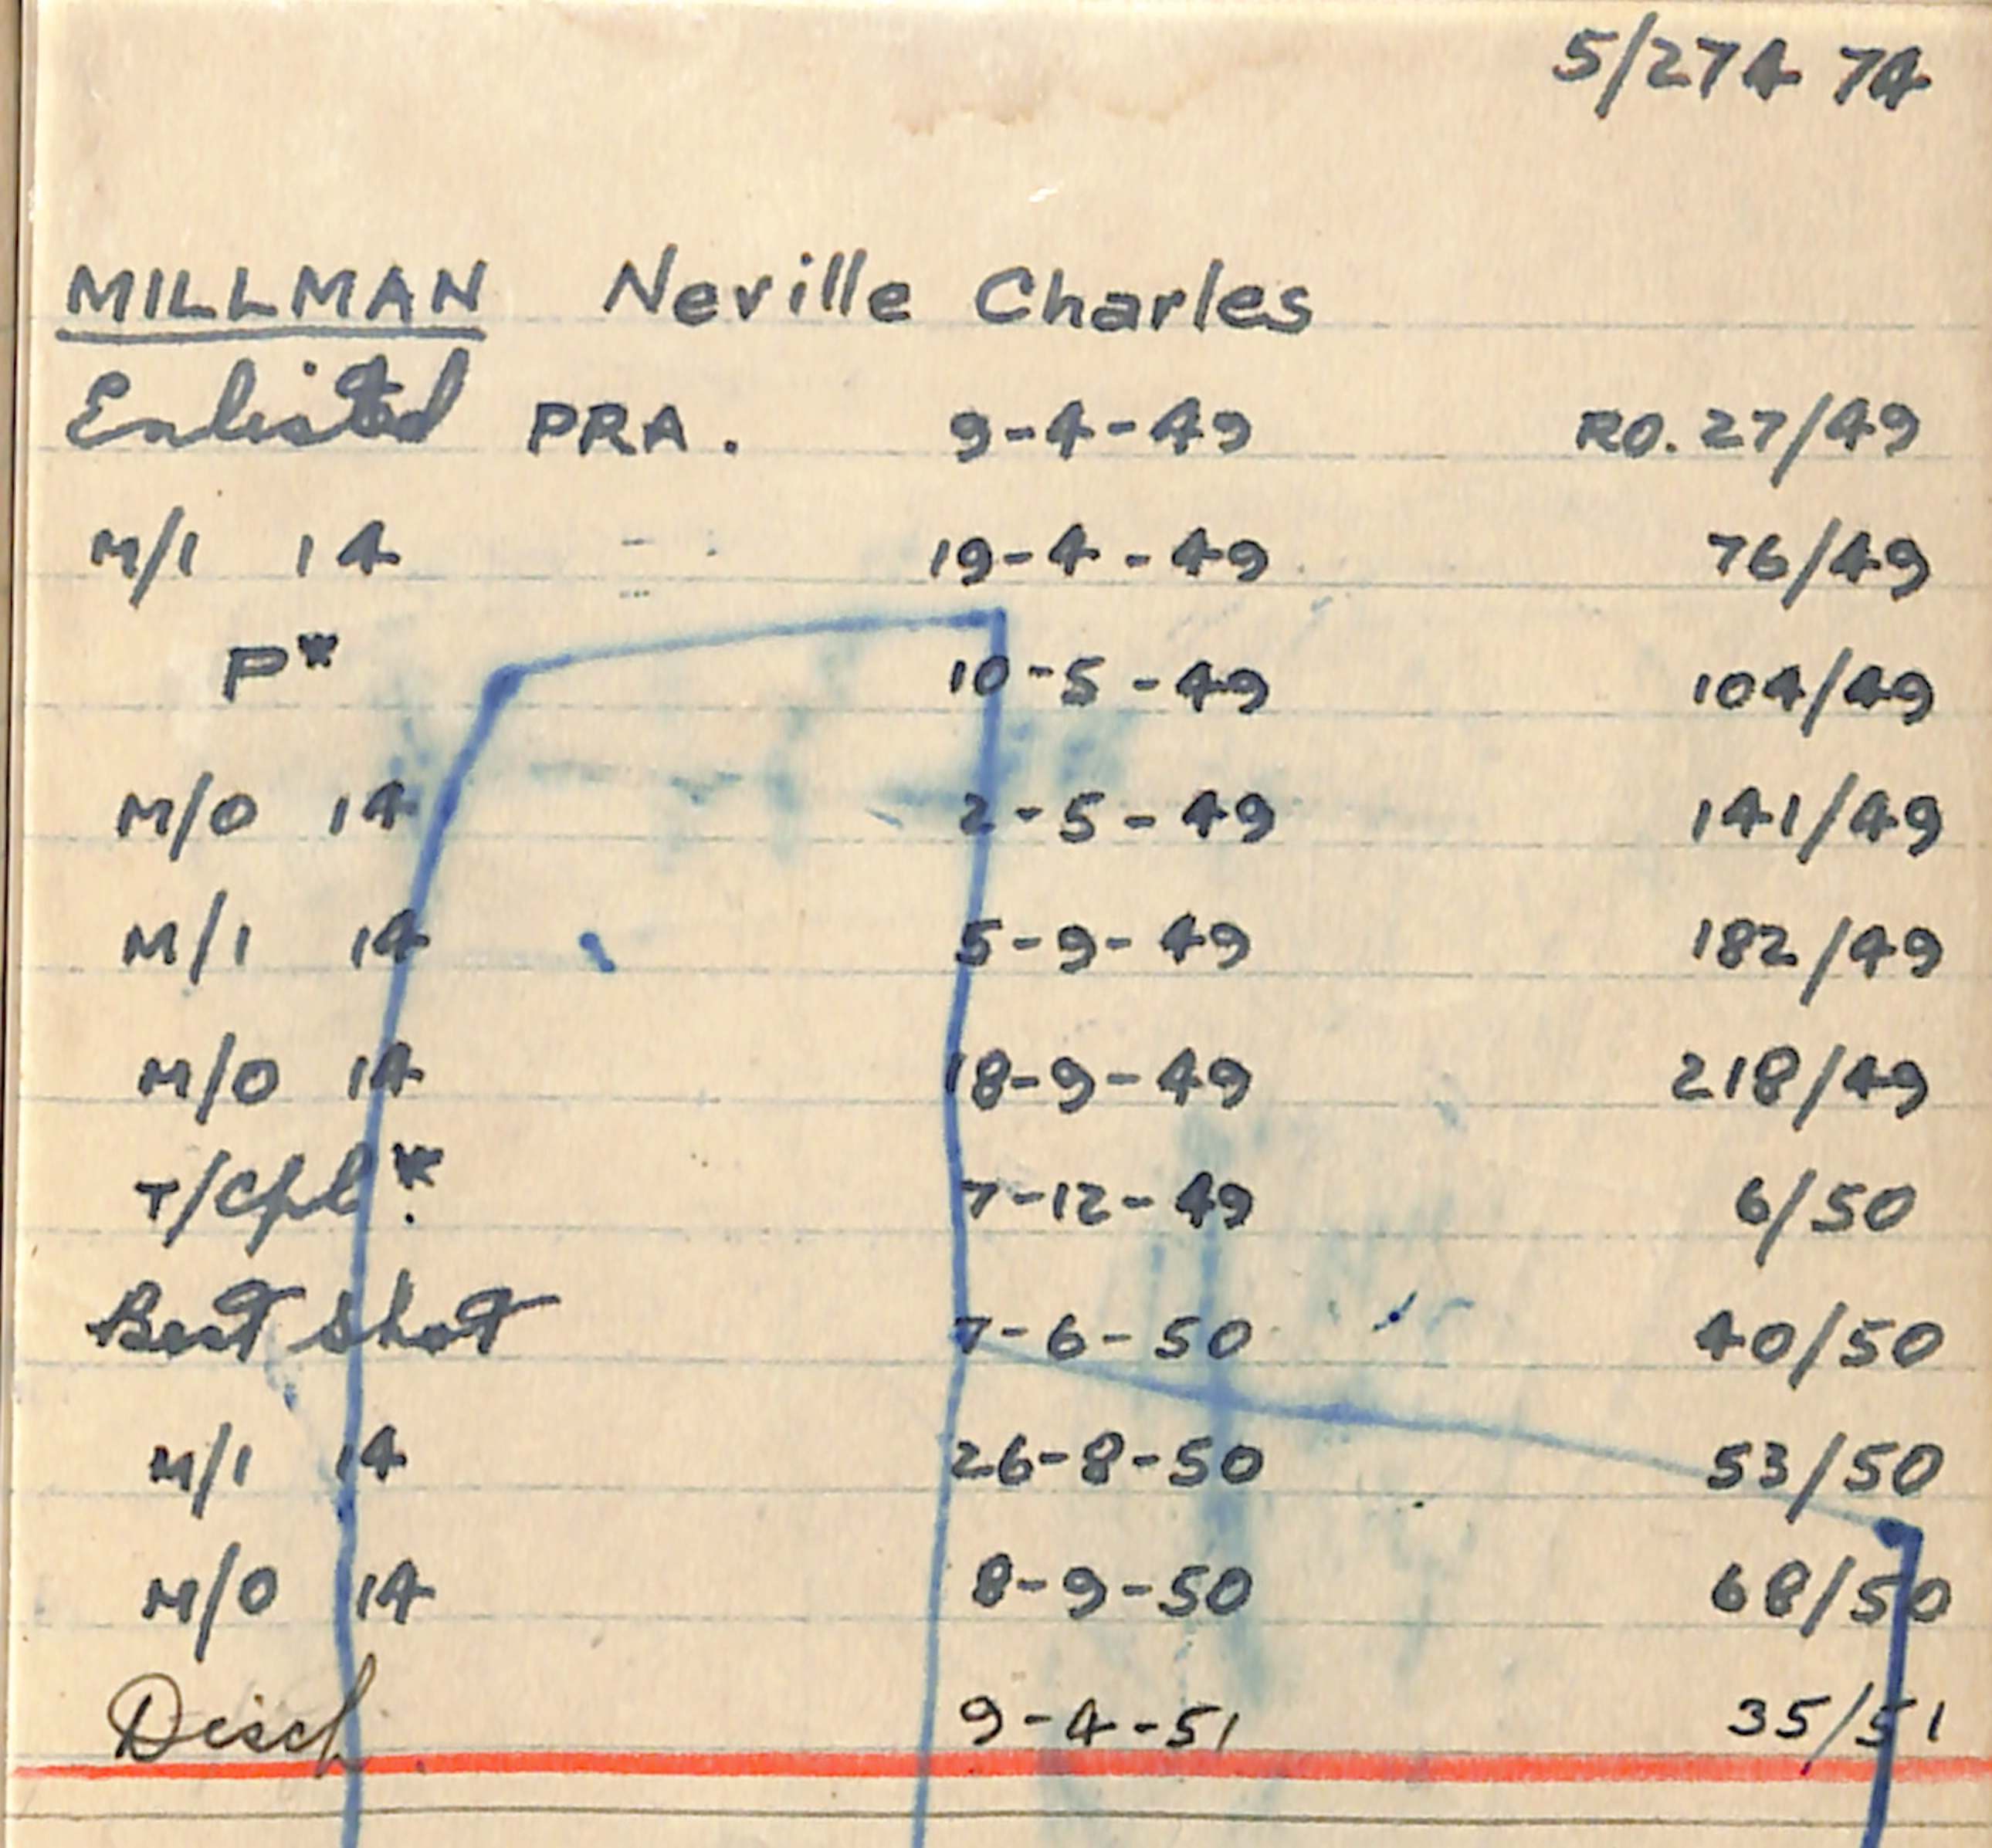 5/274 74
MILLMAN Neville Charles
Enlisted PRA. 9-4-49 RO. 27/49
M/1 14 19-4-49 76/49
P* 10-5-49 104/49
M/0 14 2-5-49 141/49
M/1 14 5-9-49 182/49
M/0 14 18-9-49 218/49
T/Cpl.* 7-12-49 6/50
Best Shot 7-6-50 40/50
M/1 14 26-8-50 53/50
M/0 14 8-9-50 68/50
Disch 9-4-51 35/51